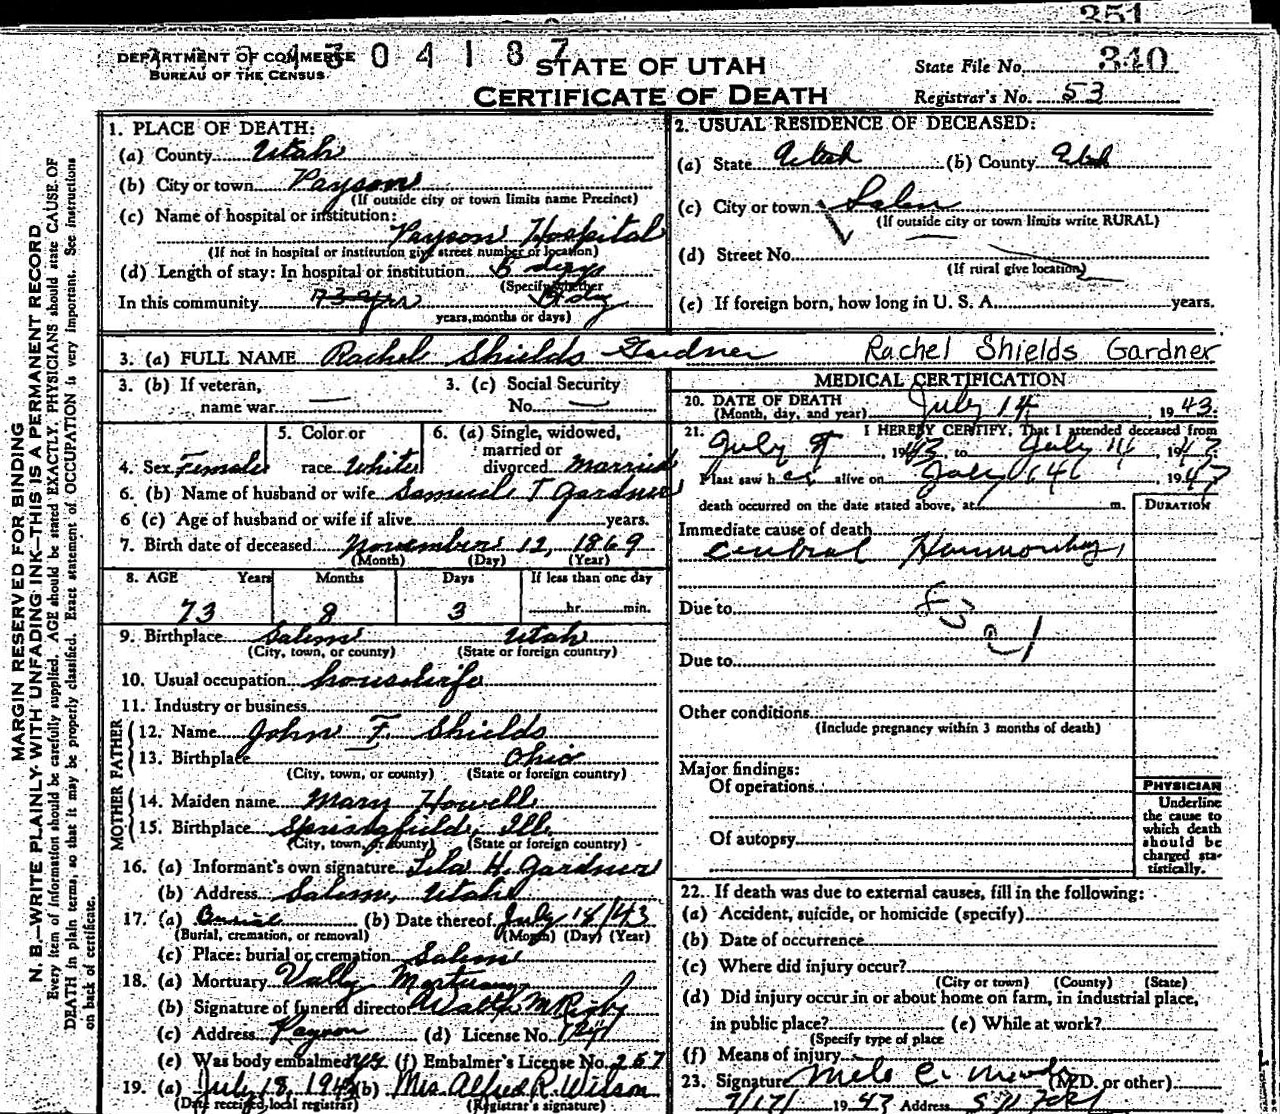 351
DEPARTMENT OF COMMERCE
BUREAU OF THE CENSUS
304187
STATE OF UTAH
CERTIFICATE OF DEATH
State File No. 340
Registrar's No. 53
MARGIN RESERVED FOR BINDING
N. B.—WRITE PLAINLY WITH UNFADING INK—THIS IS A PERMANENT RECORD
Every item of information should be carefully supplied. AGE should be stated EXACTLY. PHYSICIANS should state CAUSE OF
DEATH in plain terms, so that it may be properly classified. Exact statement of OCCUPATION is very important. See instructions
on back of certificate.
1. PLACE OF DEATH:
(a) County Utah
(b) City or town Payson
(If outside city or town limits name Precinct)
(c) Name of hospital or institution:
Payson Hospital
(If not in hospital or institution give street number or location)
(d) Length of stay: In hospital or institution 5 days
(Specify whether
In this community 73 yrs
years, months or days)
2. USUAL RESIDENCE OF DECEASED:
(a) State Utah (b) County Utah
(c) City or town Salem
(If outside city or town limits write RURAL)
(d) Street No.
(If rural give location)
(e) If foreign born, how long in U. S. A. years.
3. (a) FULL NAME Rachel Shields Gardner Rachel Shields Gardner
3. (b) If veteran,
name war
3. (c) Social Security
No.
4. Sex Female
5. Color or
race White
6. (a) Single, widowed,
married or
divorced Married
6. (b) Name of husband or wife Samuel T Gardner
6 (c) Age of husband or wife if alive years.
7. Birth date of deceased November 12, 1869
(Month) (Day) (Year)
8. AGE Years Months Days If less than one day
73 8 3 hr. min.
9. Birthplace Salem Utah
(City, town, or county) (State or foreign country)
10. Usual occupation housewife
11. Industry or business
FATHER
12. Name John F. Shields
13. Birthplace Ohio
(City, town, or county) (State or foreign country)
MOTHER
14. Maiden name Mary Howell
15. Birthplace Springfield, Ill
(City, town, or county) (State or foreign country)
16. (a) Informant's own signature Lila H. Gardner
(b) Address Salem, Utah
17. (a) Burial (b) Date thereof July 18/43
(Burial, cremation, or removal) (Month) (Day) (Year)
(c) Place: burial or cremation Salem
18. (a) Mortuary Vally Mortuary
(b) Signature of funeral director Walter M Rigby
(c) Address Payson (d) License No.
(e) Was body embalmed yes (f) Embalmer's License No. 257
19. (a) July 18, 1943 (b) Mrs. Alfred R. Wilson
(Date received local registrar) (Registrar's signature)
MEDICAL CERTIFICATION
20. DATE OF DEATH
(Month, day, and year) July 14, 1943.
21. I HEREBY CERTIFY, That I attended deceased from
July 9, 1943, to July 14, 1943.
I last saw her alive on July 14, 1943
death occurred on the date stated above, at m.
DURATION
Immediate cause of death
Hemorrhage
Due to
Due to
Other conditions
(Include pregnancy within 3 months of death)
Major findings:
Of operations
Of autopsy
PHYSICIAN
Underline
the cause to
which death
should be
charged sta-
tistically.
22. If death was due to external causes, fill in the following:
(a) Accident, suicide, or homicide (specify)
(b) Date of occurrence
(c) Where did injury occur?
(City or town) (County) (State)
(d) Did injury occur in or about home on farm, in industrial place,
in public place? (e) While at work?
(Specify type of place
(f) Means of injury
23. Signature (M.D. or other)
7/17/ 1943 Address